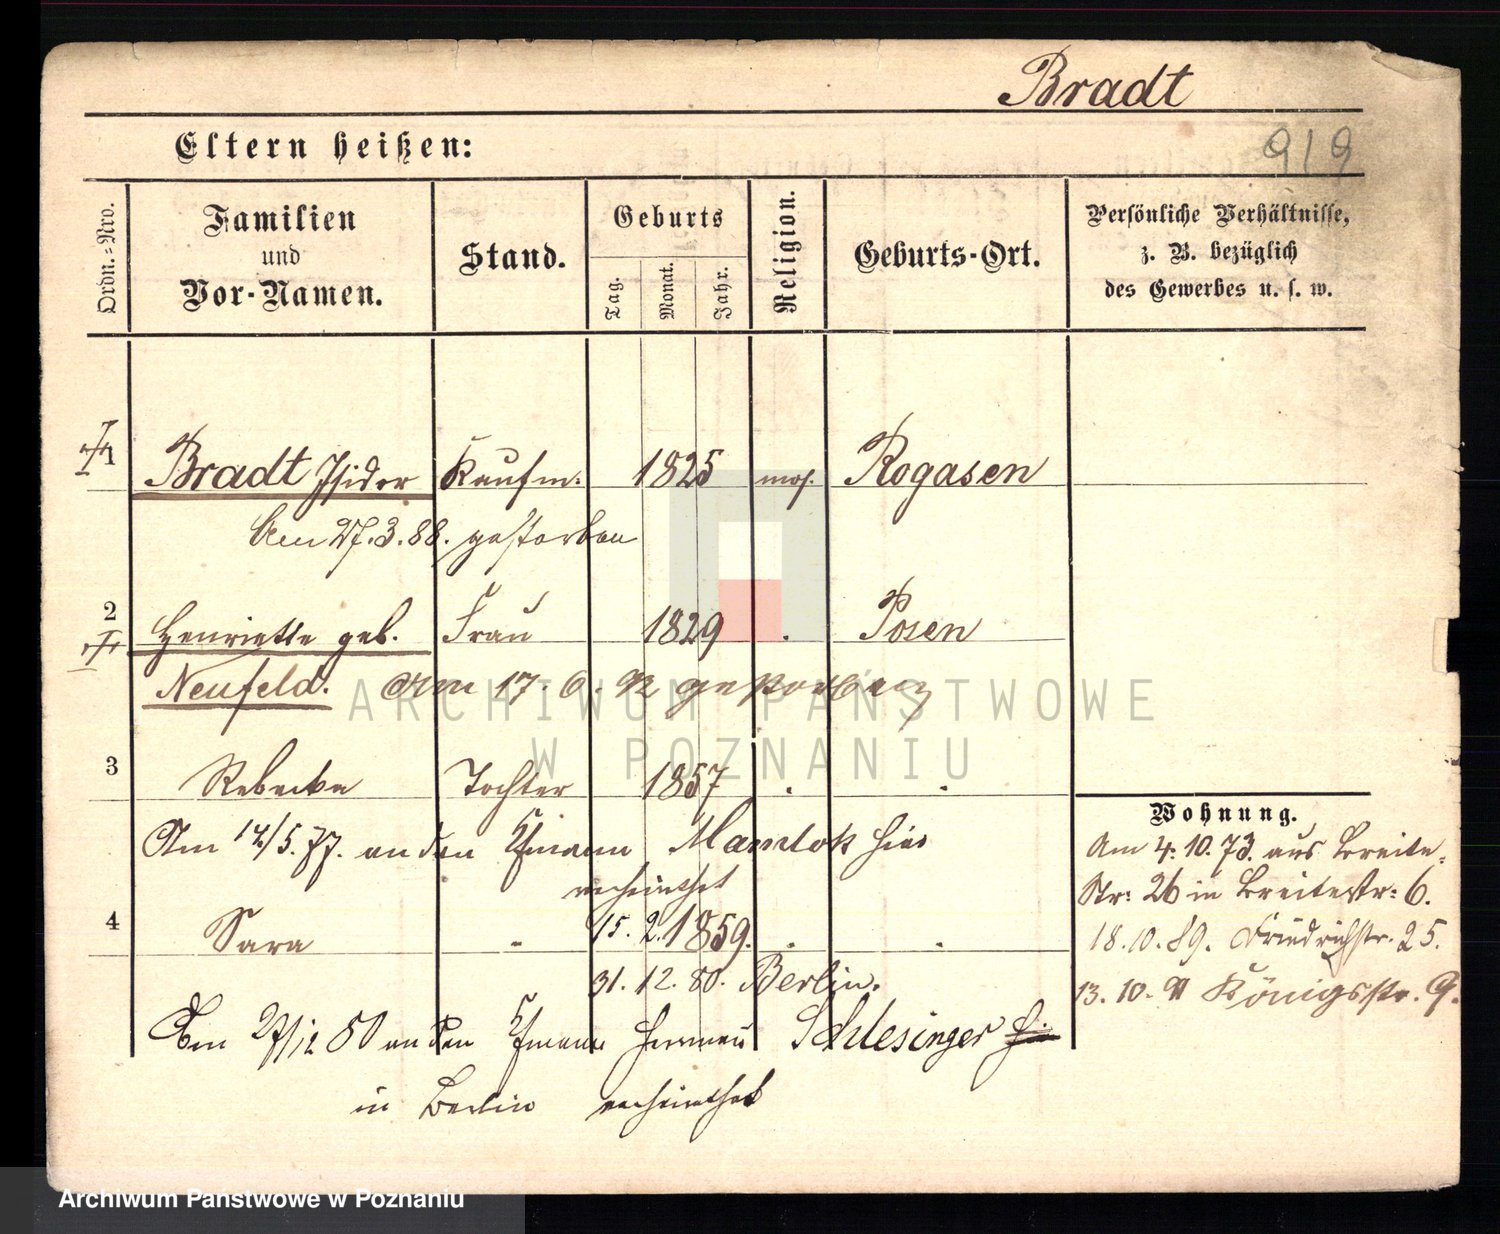 Bradt
919
Eltern heißen:
Ordn.=Nro.
Familien
und
Vor-Namen.
Stand.
Geburts
Tag.
Monat.
Jahr.
Religion.
Geburts-Ort.
Persönliche Verhältnisse,
z. B. bezüglich
des Gewerbes u. s. w.
1 Bradt Isidor Kaufm. 1825 mos. Rogasen
Am 27.3.88. gestorben
2 Henriette geb. Frau 1829 . Posen
Neufeld. Am 17. 6. gestorben
3 Rebecka Tochter 1857 . .
Am 14/5.77. an den Kfmann hier
verheirathet
4 Sara - 15. 2. 1859. . .
31. 12. 80. Berlin.
Am 27/12 80 an den Kfmann Herman Schlesinger
in Berlin verheirathet
Wohnung.
Am 4.10.73. aus Breite-
Str: 26 in Breitestr: 6.
18.10.89. Friedrichstr. 25.
13. 10. Königsstr. 9.
ARCHIWUM PAŃSTWOWE
W POZNANIU
Archiwum Państwowe w Poznaniu